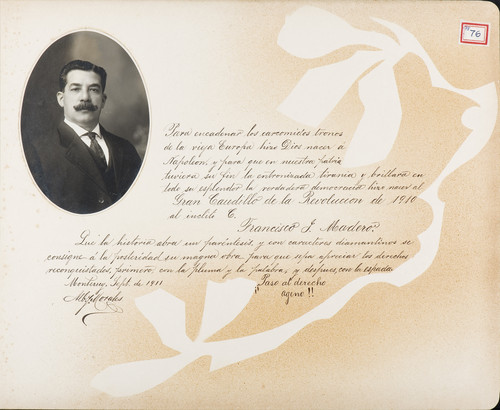 76
Para encadenar los carcomidos tronos
de la vieja Europa hizo Dios nacer á
Napoleon, y para que en nuestra patria
tuviera su fin la entronizada tirania y brillara en
todo su esplendor la verdadera democracia hizo nacer al
Gran Caudillo de la Revolucion de 1910
al inclito C.
Francisco I. Madero.
Que la historia abra un paréntesis, y con caracteres diamantinos se
consigne á la posteridad su magna obra para que sepa apreciar los derechos
reconquistados, primero, con la pluma y la palabra, y despues, con la espada.
Monterrey, Sept. de 1911.
¡¡Paso al derecho
ageno!!
Morales